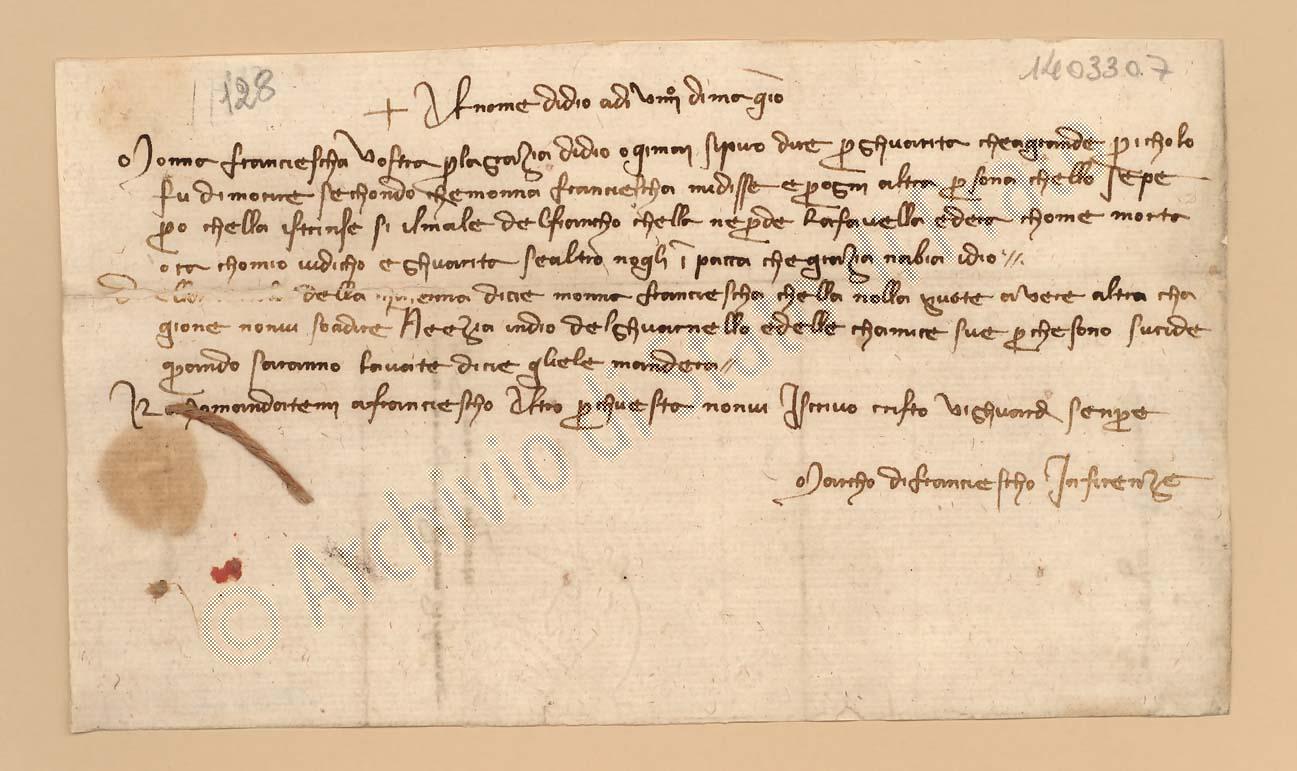 128
1403307
+ Al nome di dio adi viiii di magio
Monna franciescha vostra per la grazia didio ogimai si puo dire per ghuarita chea grande pericholo
fu di morire sechondo che monna franciescha midisse e per ogni altra persona chello sepe
pero chella istrinse si il male del fiancho chella ne perde la favella ed era chome morta
ora chomio vidicho e ghuarita se altro no gli in pacca che grazia nabia idio
della dicie monna franciescha chella nolla puote avere altra cha
gione nonvi so a dire Neenzia indio del ghuarnello e delle chamice sue perche sono sucide
quando saranno lavate dicie gliele mandera
Rachomandatemi a franciescho Altro per chuesta nonvi Iscrivo cristo vi ghuardi senpre
Marcho di franciescho In firenze
© Archivio di Stato di Prato